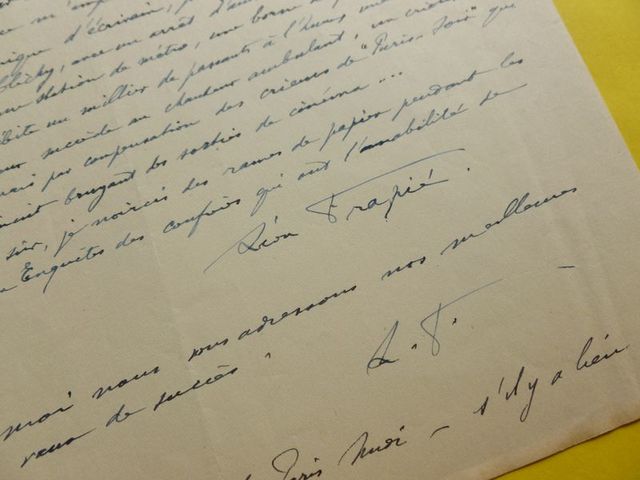 d'écrivain,
Clichy, avec un arrêt d'au
une station de métro, une borne
débite un millier de passants à l'heure
succède au chanteur ambulant, un crieur
mais par compensation des crieurs de "Paris-Soir" que
bougent des sorties de cinéma...
soir, je noircis des rames de papier pendant les
Enquêtes des confrères qui ont l'amabilité de
Léon Frapié.
moi nous vous adressons nos meilleurs
vœux de succès.
L. F.
Paris Midi - s'il y a lieu